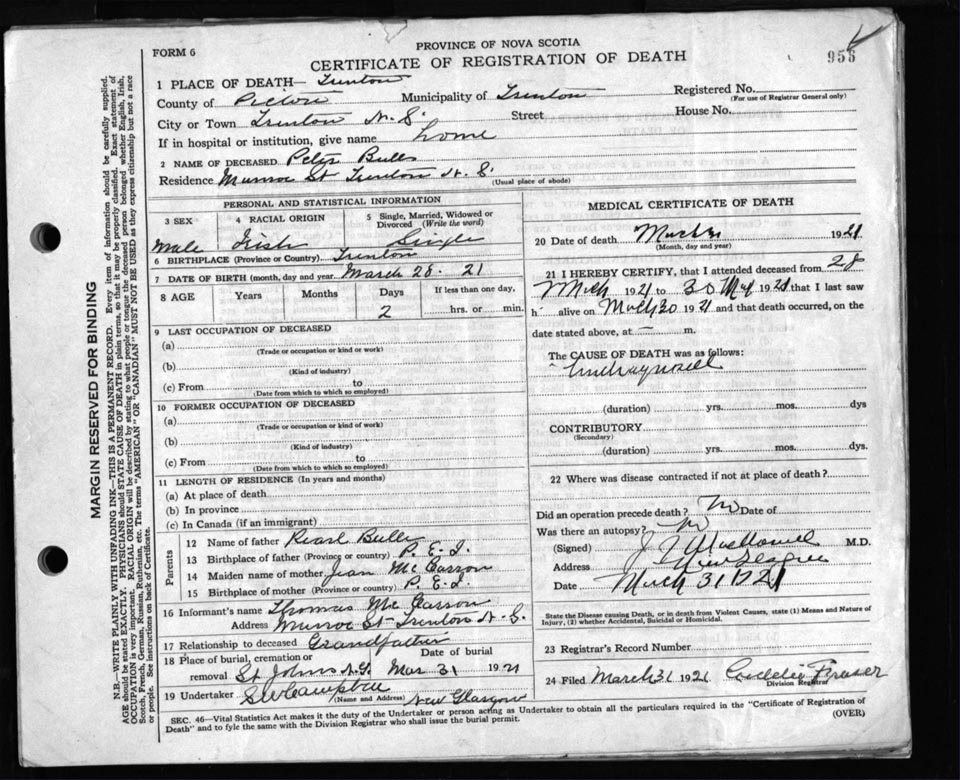 FORM 6
PROVINCE OF NOVA SCOTIA
CERTIFICATE OF REGISTRATION OF DEATH
956
1 PLACE OF DEATH— Trenton
County of Pictou Municipality of Trenton Registered No.
(For use of Registrar General only)
City or Town Trenton N. S. Street House No.
If in hospital or institution, give name home
2 NAME OF DECEASED Peter Bulls
Residence Munroe St Trenton N. S.
(Usual place of abode)
MARGIN RESERVED FOR BINDING
N.B.—WRITE PLAINLY WITH UNFADING INK—THIS IS A PERMANENT RECORD. Every item of information should be carefully supplied.
AGE should be stated EXACTLY. PHYSICIANS should STATE CAUSE OF DEATH in plain terms, so that it may be properly classified. Exact statement of
OCCUPATION is very important. RACIAL ORIGIN will be described by stating to what people or tongue the deceased person belonged whether English, Irish,
Scotch, French, German, Russian, Ruthenian, etc. The terms "AMERICAN" OR "CANADIAN" MUST NOT BE USED as they express citizenship but not a race
or people. See instructions on back of Certificate.
PERSONAL AND STATISTICAL INFORMATION
3 SEX
Male
4 RACIAL ORIGIN
Irish
5 Single, Married, Widowed or
Divorced (Write the word)
Single
6 BIRTHPLACE (Province or Country) Trenton
7 DATE OF BIRTH (month, day and year) March 28. 21
8 AGE Years Months Days If less than one day,
2 hrs. or min.
9 LAST OCCUPATION OF DECEASED
(a)
(Trade or occupation or kind or work)
(b)
(Kind of industry)
(c) From to
(Date from which to which so employed)
10 FORMER OCCUPATION OF DECEASED
(a)
(Trade or occupation or kind of work)
(b)
(Kind of industry)
(c) From to
(Date from which to which so employed)
11 LENGTH OF RESIDENCE (In years and months)
(a) At place of death
(b) In province
(c) In Canada (if an immigrant)
Parents
12 Name of father Bulls
13 Birthplace of father (Province or country) P. E. I.
14 Maiden name of mother Jean Mc Carron
15 Birthplace of mother (Province or country) P. E. I.
16 Informant's name Thomas Mc Carron
Address Munroe St Trenton N. S.
17 Relationship to deceased Grandfather
18 Place of burial, cremation or Date of burial
removal St Johns N.G. Mar 31 1921
19 Undertaker
(Name and Address) New Glasgow
MEDICAL CERTIFICATE OF DEATH
20 Date of death 1921
(Month, day and year)
21 I HEREBY CERTIFY, that I attended deceased from 28
Mch 1921 to 30 Mch 1921 that I last saw
h alive on Mch 30 1921 and that death occurred, on the
date stated above, at — m.
The CAUSE OF DEATH was as follows:
(duration) yrs. mos. dys
CONTRIBUTORY
(Secondary)
(duration) yrs. mos. dys.
22 Where was disease contracted if not at place of death?
Did an operation precede death? No Date of
Was there an autopsy? No
(Signed) M.D.
Address New Glasgow
Date March 31 1921
State the Disease causing Death, or in death from Violent Causes, state (1) Means and Nature of
Injury, (2) whether Accidental, Suicidal or Homicidal.
23 Registrar's Record Number
24 Filed March 31 1921 Fraser
Division Registrar
SEC. 46—Vital Statistics Act makes it the duty of the Undertaker or person acting as Undertaker to obtain all the particulars required in the "Certificate of Registration of
Death" and to fyle the same with the Division Registrar who shall issue the burial permit.
(OVER)